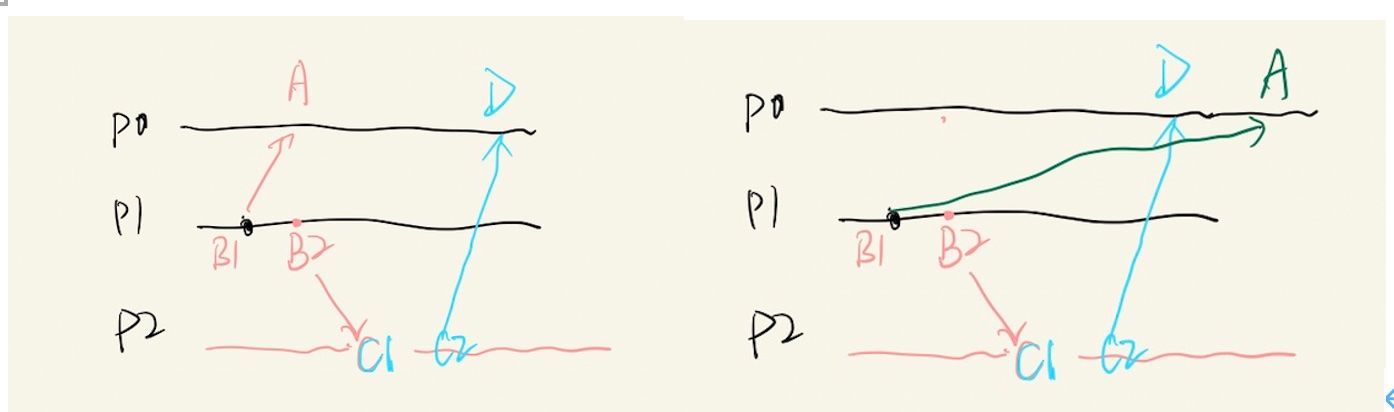 A D
P0
P1
B1 B2
P2
C1 C2
D A
P0
P1
B1 B2
P2
C1 C2